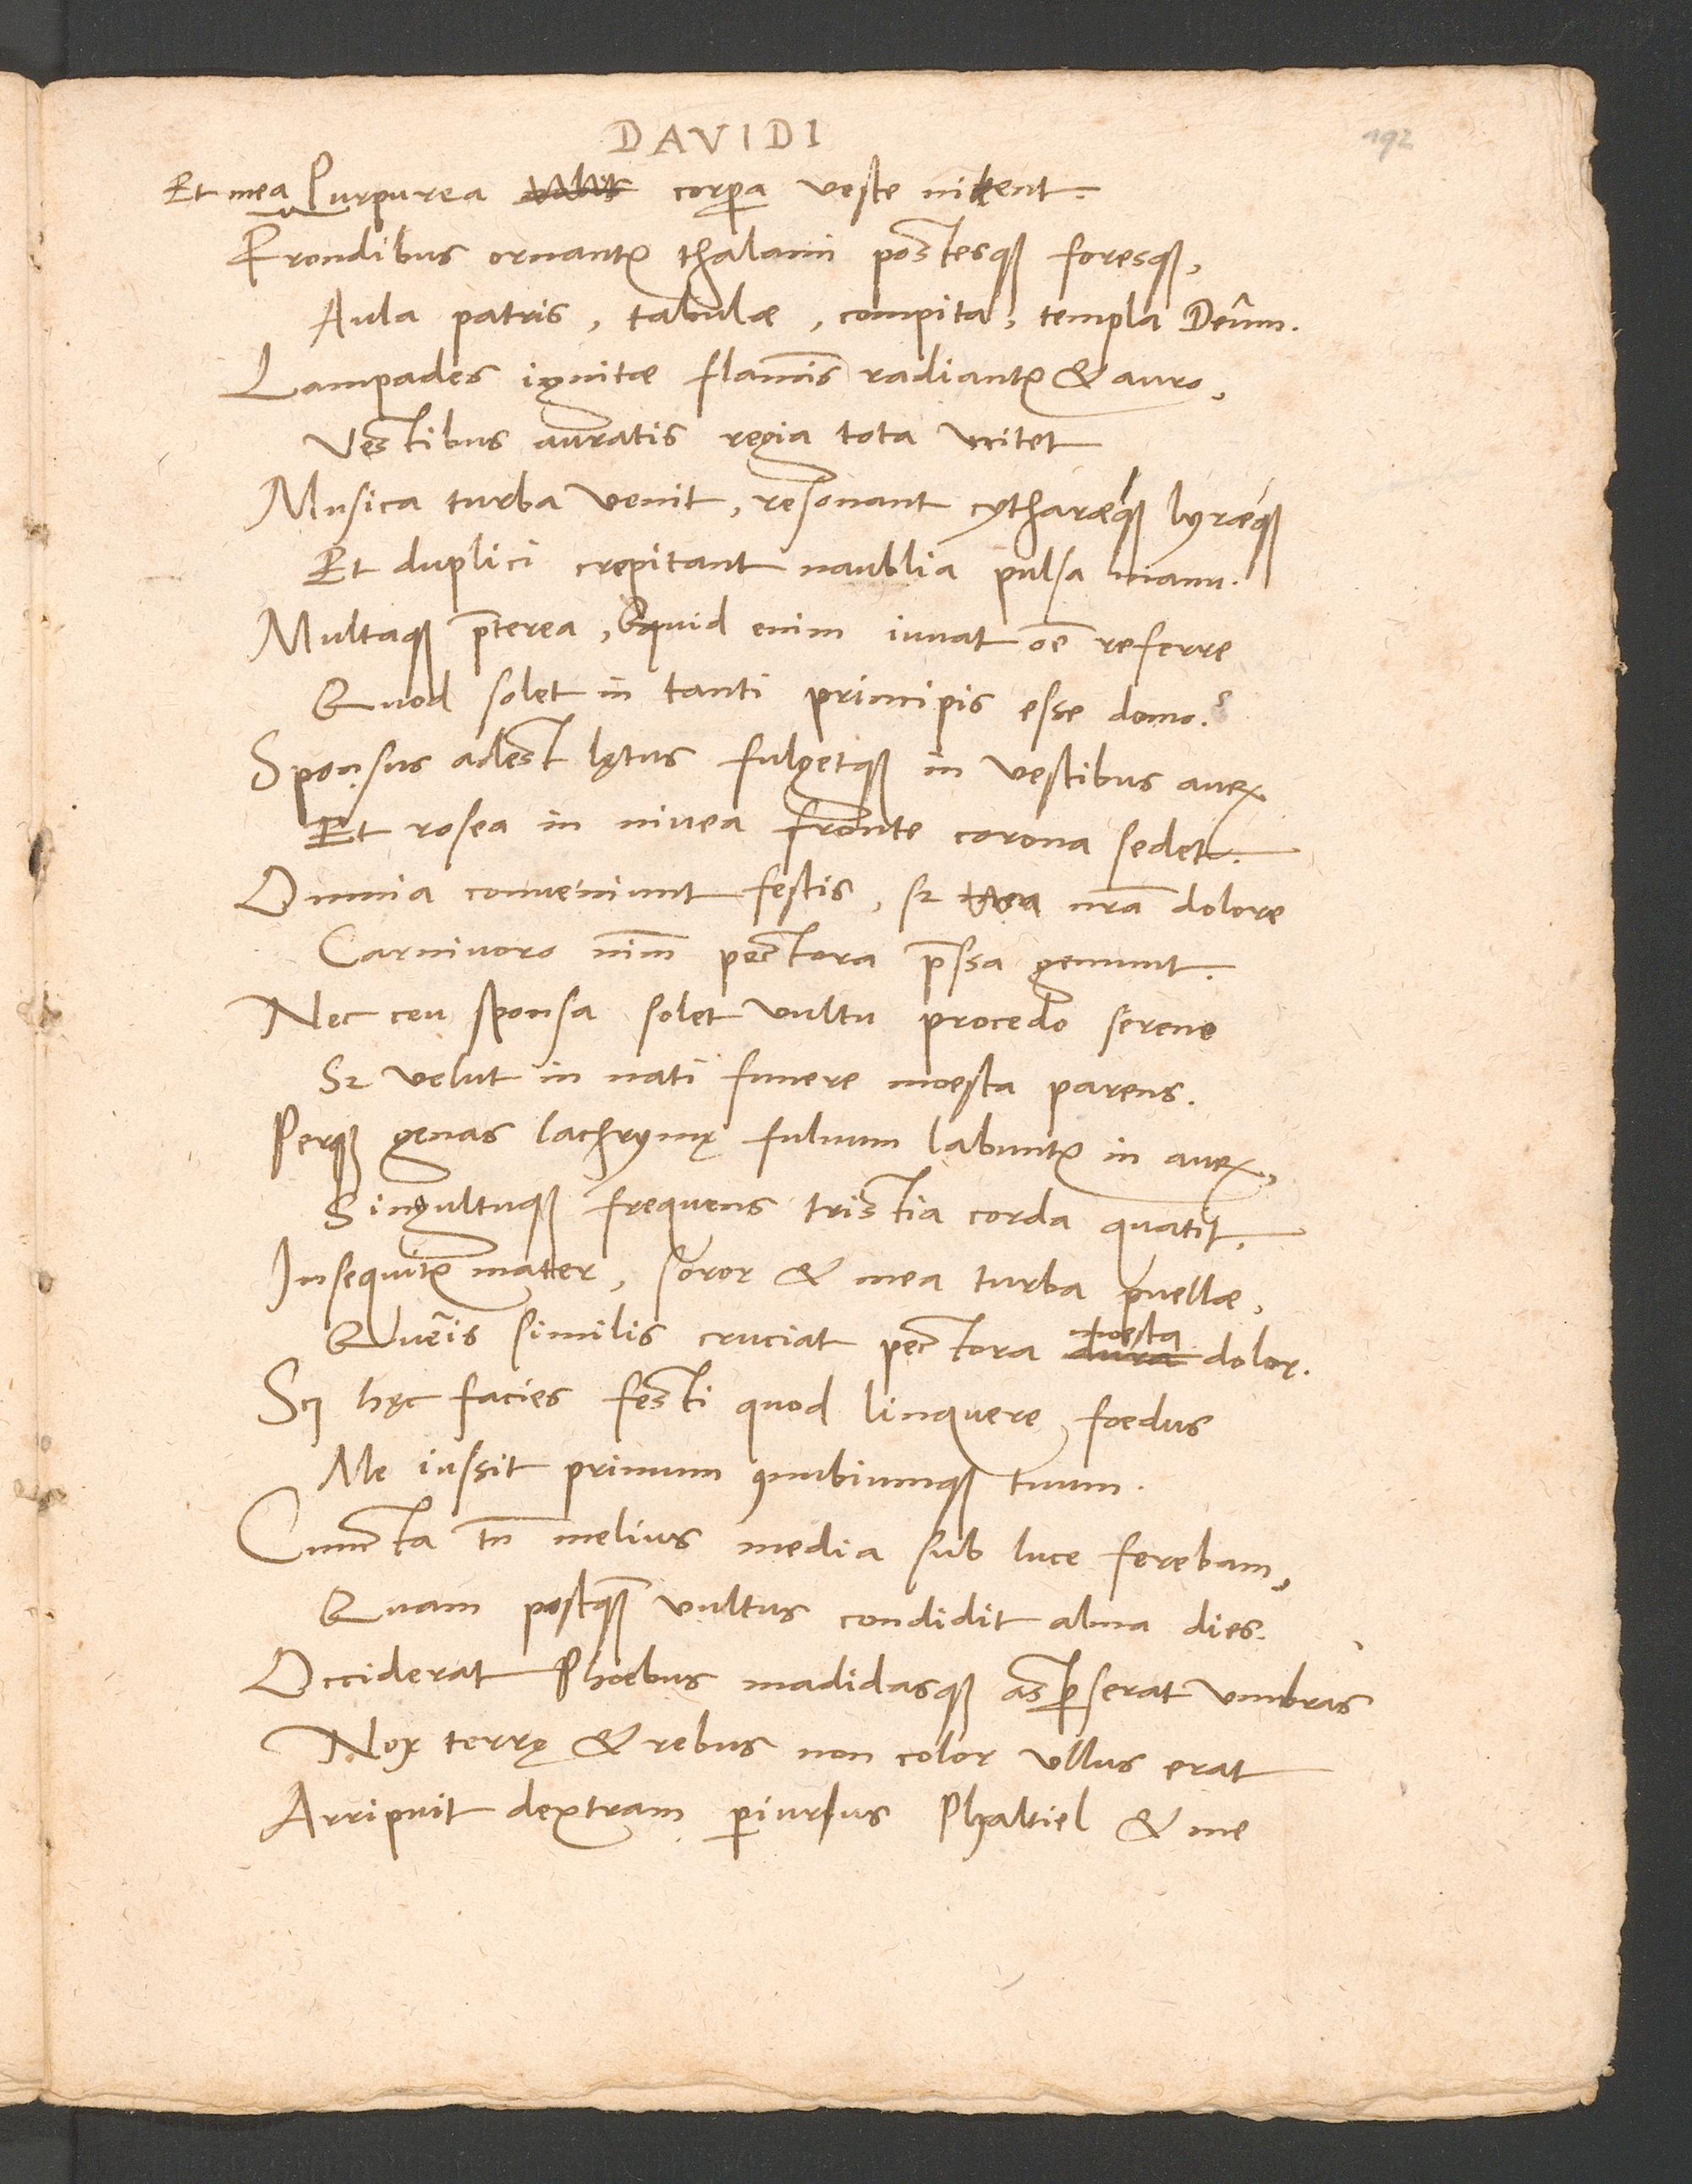 DAVIDI
192
Et mea Purpurea corpora veste nitent.
Frondibus ornantur thalami postesque foresque,
Aula patris, tabulæ, compita, templa Deûm.
Lampades ignitæ flammis radiantur & auro,
Vestibus auratis regia tota nitet
Musica turba venit, resonant cytharæque lyræque
Et duplici crepitant naublia pulsa manu.
Multaque præterea, Quid enim iuvat omne referre
Quod solet in tanti principis esse domo?
Sponsus adest lętus fulgetque in vestibus aureis
Et rosea in nivea fronte corona sedet.
Omnia conveniunt festis, sed nostra dolore
Carnivoro nimium pectora pressa gemunt.
Nec ceu sponsa solet vultu procedo sereno
Sed velut in nati funere moesta parens.
Perque genas lachrymę fulvum labuntur in aurum,
Singultuque frequens tristia corda quatit,
Insequitur mater, soror & mea turba puellæ,
Queis similis cruciat pectora dura moesta dolor.
Scilicet hęc facies festi quod linquere foedus
Me iussit primum connubiumque tuum.
Cuncta tamen melius media sub luce ferebam,
Quam postquam vultus condidit alma dies.
Occiderat Phoebus madidasque asperserat umbras
Nox terrę & rebus non color ullus erat
Arripuit dextram periurus Phaltiel & me